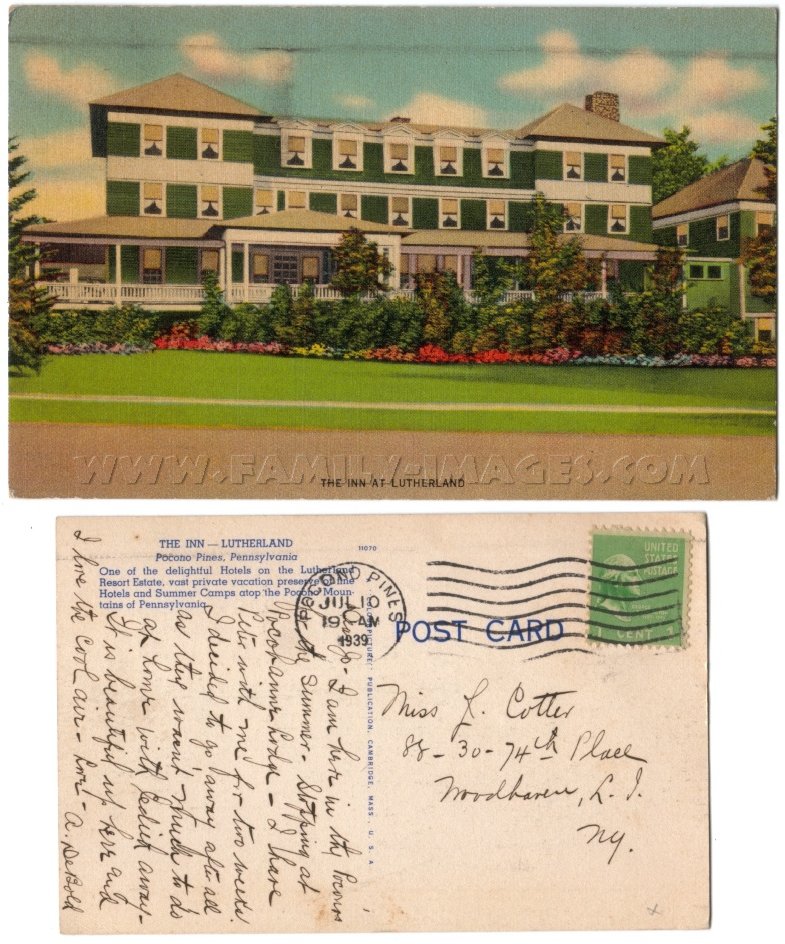 WWW.FAMILY-IMAGES.COM
THE INN AT LUTHERLAND
THE INN — LUTHERLAND
Pocono Pines, Pennsylvania
11070
One of the delightful Hotels on the Lutherland
Resort Estate, vast private vacation preserve of fine
Hotels and Summer Camps atop the Pocono Moun-
tains of Pennsylvania.
POCONO PINES
JUL 10
9 AM
1939
UNITED
STATES
POSTAGE
1 CENT
POST CARD
PUBLICATION, CAMBRIDGE, MASS., U. S. A.
I am here in the Pocono
for the summer - Stopping at
Lodge - I have
Pete with me for two weeks.
I decided to go away after all
as they wasn't much to do
at home with away -
It is beautiful up here and
I love the cool air - Love - A. DeBold
Miss L. Cotter
88-30-74th Place
Woodhaven, L. I.
Ny.